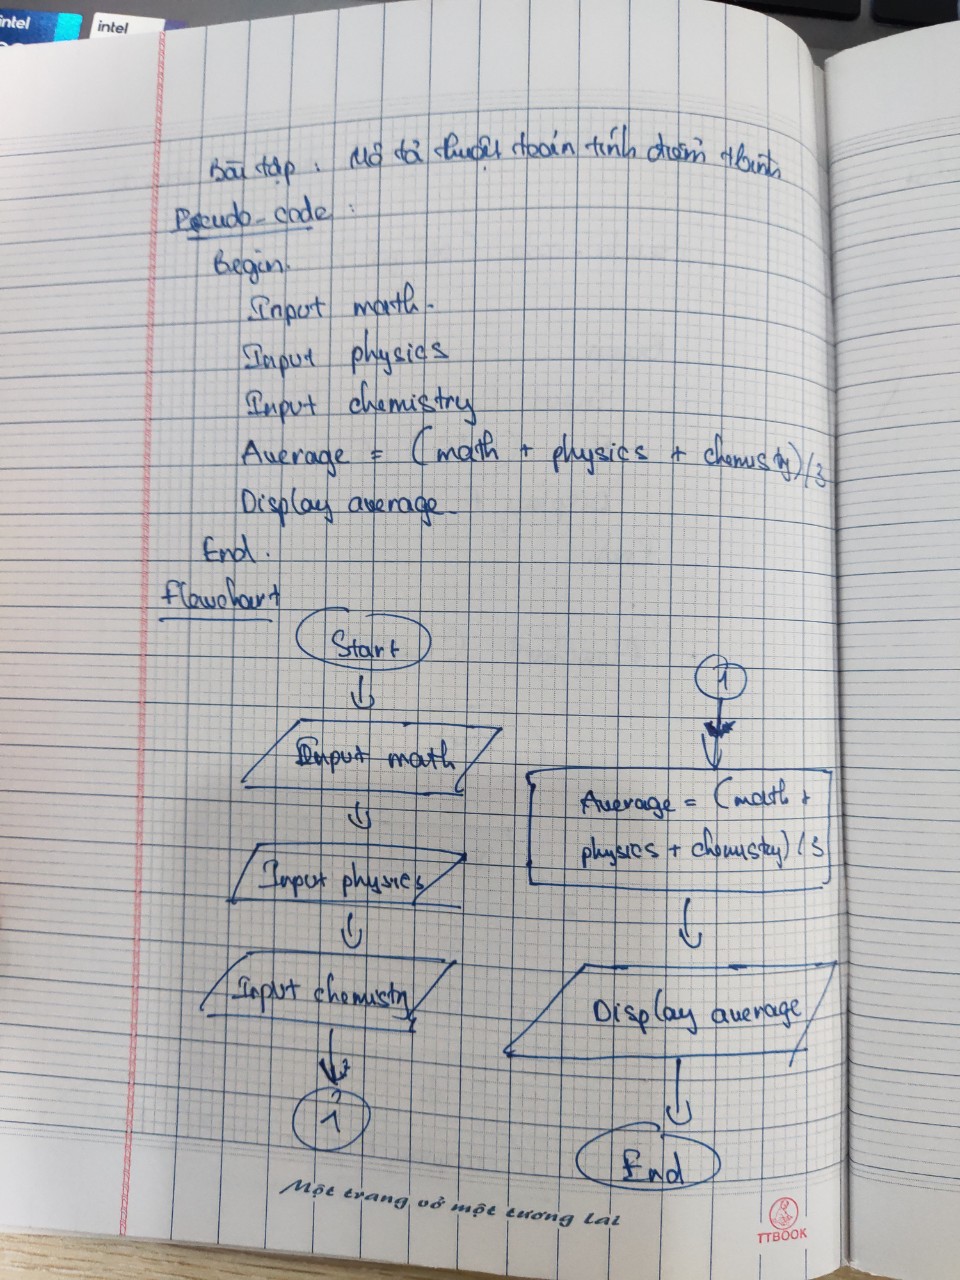 intel
intel
Bài tập : Mô tả thuật toán tính điểm tbình
Pseudo-code :
Begin.
Input math.
Input physics
Input chemistry
Average = (math + physics + chemisty)/3
Display average
End.
flowchart
Start
Input math
Input physics
Input chemistry
1
1
Average = (math +
physics + chemistry)/3
Display average
End
Một trang vở một tương lai
TTBOOK